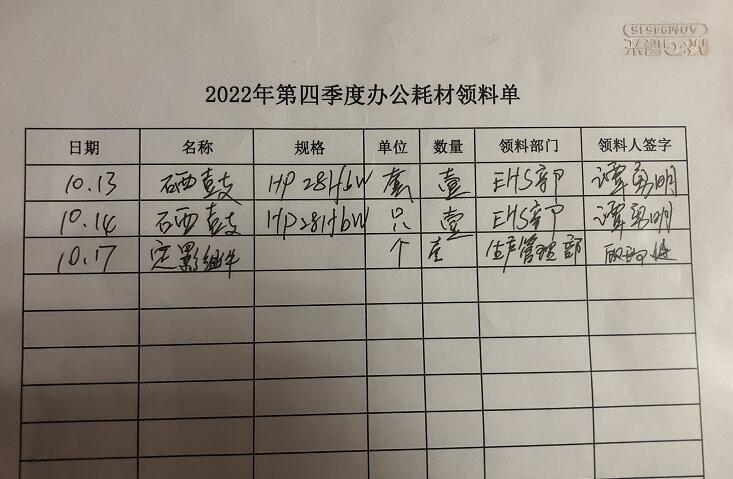 M&G晨光
ADM94515
2022年第四季度办公耗材领料单
日期 名称 规格 单位 数量 领料部门 领料人签字
10.13 硒鼓 HP 28HbW 套 壹 EHS部 谭勇明
10.14 硒鼓 HP28HbW 只 壹 EHS部 谭勇明
10.17 定影组件 个 壹 生产管理部